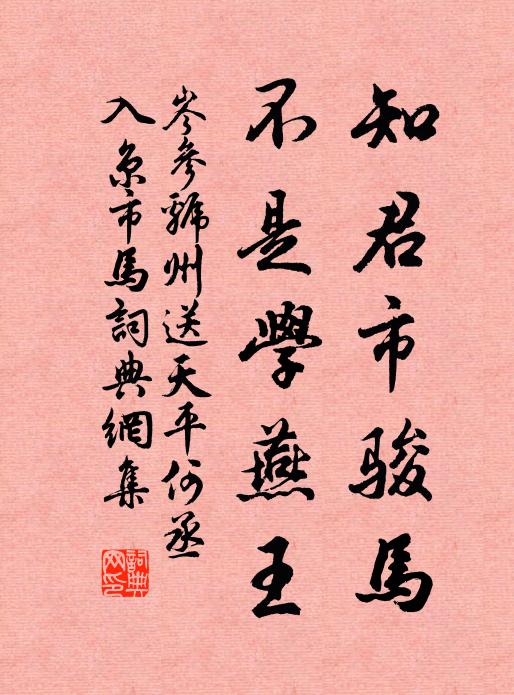 知君市駿馬
不是學燕王
岑參虢州送天平何丞
入京市馬詞典網集
詞典
网印